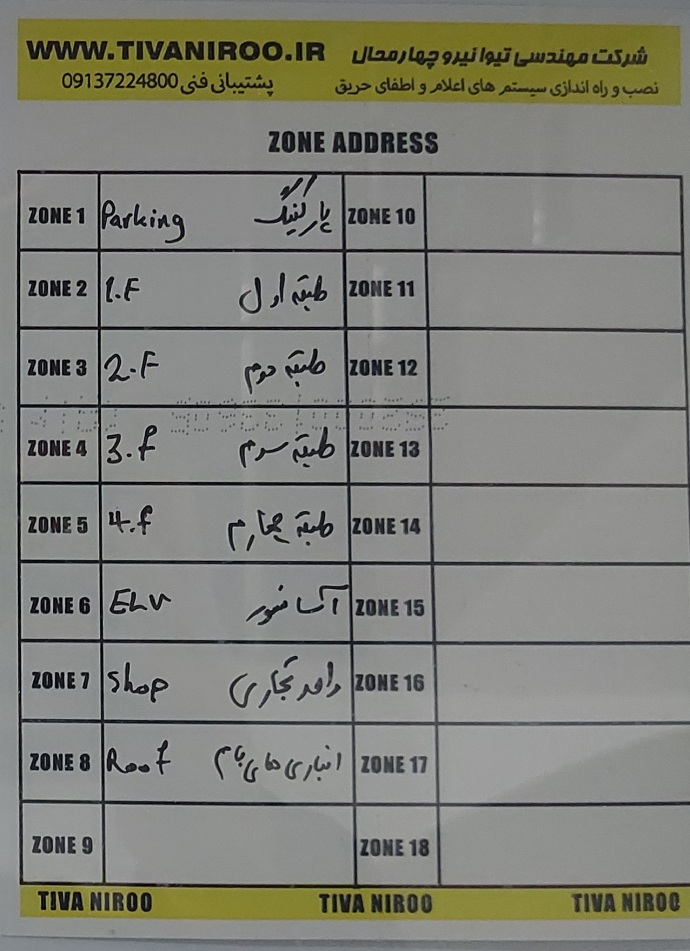 WWW.TIVANIROO.IR شرکت مهندسی تیوا نیرو چهارمحال
پشتیبانی فنی 09137224800 نصب و راه اندازی سیستم های اعلام و اطفای حریق
ZONE ADDRESS
ZONE 1 Parking پارکینگ ZONE 10
ZONE 2 1.F طبقه اول ZONE 11
ZONE 3 2.F طبقه دوم ZONE 12
ZONE 4 3.f طبقه سوم ZONE 13
ZONE 5 4.f طبقه چهارم ZONE 14
ZONE 6 ELV آسانسور ZONE 15
ZONE 7 Shop واحد تجاری ZONE 16
ZONE 8 Roof انباری های بام ZONE 17
ZONE 9 ZONE 18
TIVA NIROO TIVA NIROO TIVA NIROO